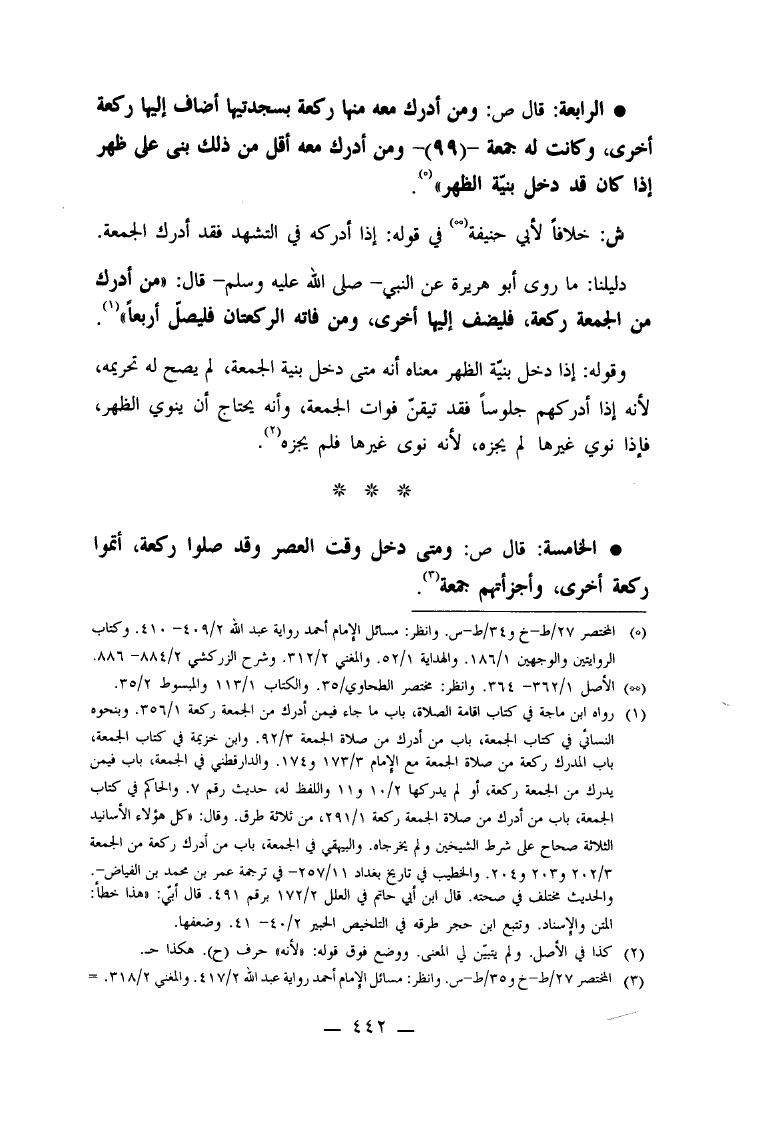 ● الرابعة: قال ص: ومن أدرك معه منها ركعة بسجدتيها أضاف إليها ركعة
أخرى، وكانت له جمعة -(٩٩)- ومن أدرك معه أقل من ذلك بنى على ظهر
إذا كان قد دخل بنيّة الظهر»(٥).
ش: خلافاً لأبي حنيفة(٥٥) في قوله: إذا أدركه في التشهد فقد أدرك الجمعة.
دليلنا: ما روى أبو هريرة عن النبي- صلى الله عليه وسلم- قال: «من أدرك
من الجمعة ركعة، فليضف إليها أخرى، ومن فاته الركعتان فليصلّ أربعاً»(١).
وقوله: إذا دخل بنيّة الظهر معناه أنه متى دخل بنية الجمعة، لم يصح له تحريمه،
لأنه إذا أدركهم جلوساً فقد تيقنّ فوات الجمعة، وأنه يحتاج أن ينوي الظهر،
فإذا نوي غيرها لم يجزه، لأنه نوى غيرها فلم يجزه(٢).
* * *
● الخامسة: قال ص: ومتى دخل وقت العصر وقد صلوا ركعة، أتموا
ركعة أخرى، وأجزأتهم جمعة(٣).
(٥) المختصر ٢٧/ظ-خ و٣٤/ظ-س. وانظر: مسائل الإمام أحمد رواية عبد الله ٤٠٩/٢- ٤١٠. وكتاب
الروايتين والوجهين ١٨٦/١. والهداية ٥٢/١. والمغني ٣١٢/٢. وشرح الزركشي ٨٨٤/٢- ٨٨٦.
(٥٥) الأصل ٣٦٢/١- ٣٦٤. وانظر: مختصر الطحاوي/٣٥. والكتاب ١١٣/١ والمبسوط ٣٥/٢.
(١) رواه ابن ماجة في كتاب اقامة الصلاة، باب ما جاء فيمن أدرك من الجمعة ركعة ٣٥٦/١. وبنحوه
النسائي في كتاب الجمعة، باب من أدرك من صلاة الجمعة ٩٢/٣. وابن خزيمة في كتاب الجمعة،
باب المدرك ركعة من صلاة الجمعة مع الإمام ١٧٣/٣ و١٧٤. والدارقطني في الجمعة، باب فيمن
يدرك من الجمعة ركعة، أو لم يدركها ١٠/٢ و١١ واللفظ له، حديث رقم ٧. والحاكم في كتاب
الجمعة، باب من أدرك من صلاة الجمعة ركعة ٢٩١/١، من ثلاثة طرق. وقال: «كل هؤلاء الأسانيد
الثلاثة صحاح على شرط الشيخين ولم يخرجاه. والبيهقي في الجمعة، باب من أدرك ركعة من الجمعة
٢٠٢/٣ و٢٠٣ و٢٠٤. والخطيب في تاريخ بغداد ٢٥٧/١١- في ترجمة عمر بن محمد بن الفياض-.
والحديث مختلف في صحته. قال ابن أبي حاتم في العلل ١٧٢/٢ برقم ٤٩١. قال أبيّ: «هذا خطأ:
المتن والإسناد. وتتبع ابن حجر طرقه في التلخيص الحبير ٤٠/٢- ٤١. وضعفها.
(٢) كذا في الأصل. ولم يتبيّن لي المعنى. ووضع فوق قوله: «لأنه» حرف (ح). هكذا حـ.
(٣) المختصر ٢٧/ظ-خ و٣٥/ظ-س. وانظر: مسائل الإمام أحمد رواية عبد الله ٤١٧/٢. والمغني ٣١٨/٢. =
— ٤٤٢ —